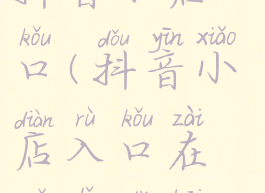 kǒu dǒu yīn xiǎo
口(抖音小
diàn rù kǒu zài
店入口在